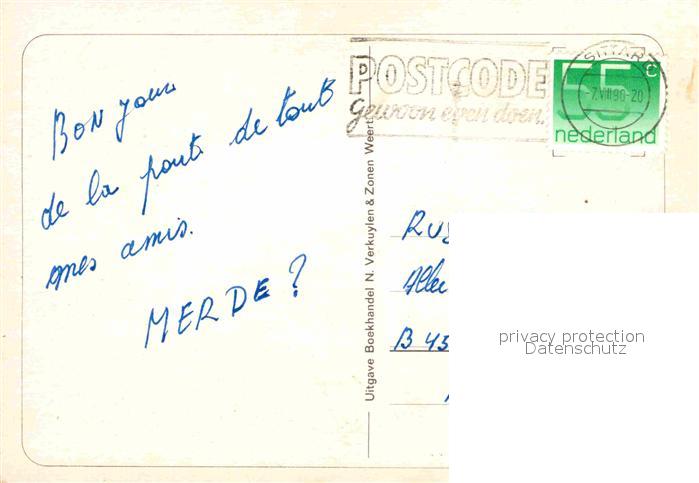 BON jour
de la part de tout
mes amis.
MERDE ?
Uitgave Boekhandel N. Verkuylen & Zonen Weert
POSTCODE
gewoon even doen.
SITTARD
-7.VIII.90-20
55 c
nederland
B 45
privacy protection
Datenschutz